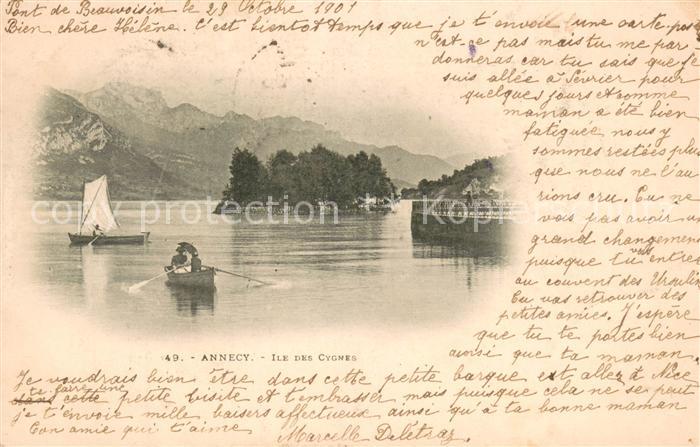 Pont de Beauvoisin le 29 Octobre 1901
Bien chère Hélène. C'est bientot temps que je t'envoie une carte pos
n'est-ce pas mais tu me par-
donneras car tu sais que je
suis allée à Février pour
quelques jours et comme
maman a été bien
fatiguée nous y
sommes restées plus
que nous ne l'au
rions cru. Tu ne
vois pas avoir un
grand changement
puisque tu entres
au couvent des Ursulin
Tu vas retrouver des
petites amies. J'espère
que tu te portes bien
ainsi que ta maman.
49. - ANNECY. - ILE DES CYGNES
Je voudrais bien être dans cette petite barque et allez à Nice
te faire une
dans cette petite visite et t'embrasser mais puisque cela ne se peut
je t'envoie mille baisers affectueux ainsi qu'à ta bonne maman
Ton amie qui t'aime Marcelle Delétraz
copyright kbpictures copyright kbpictures